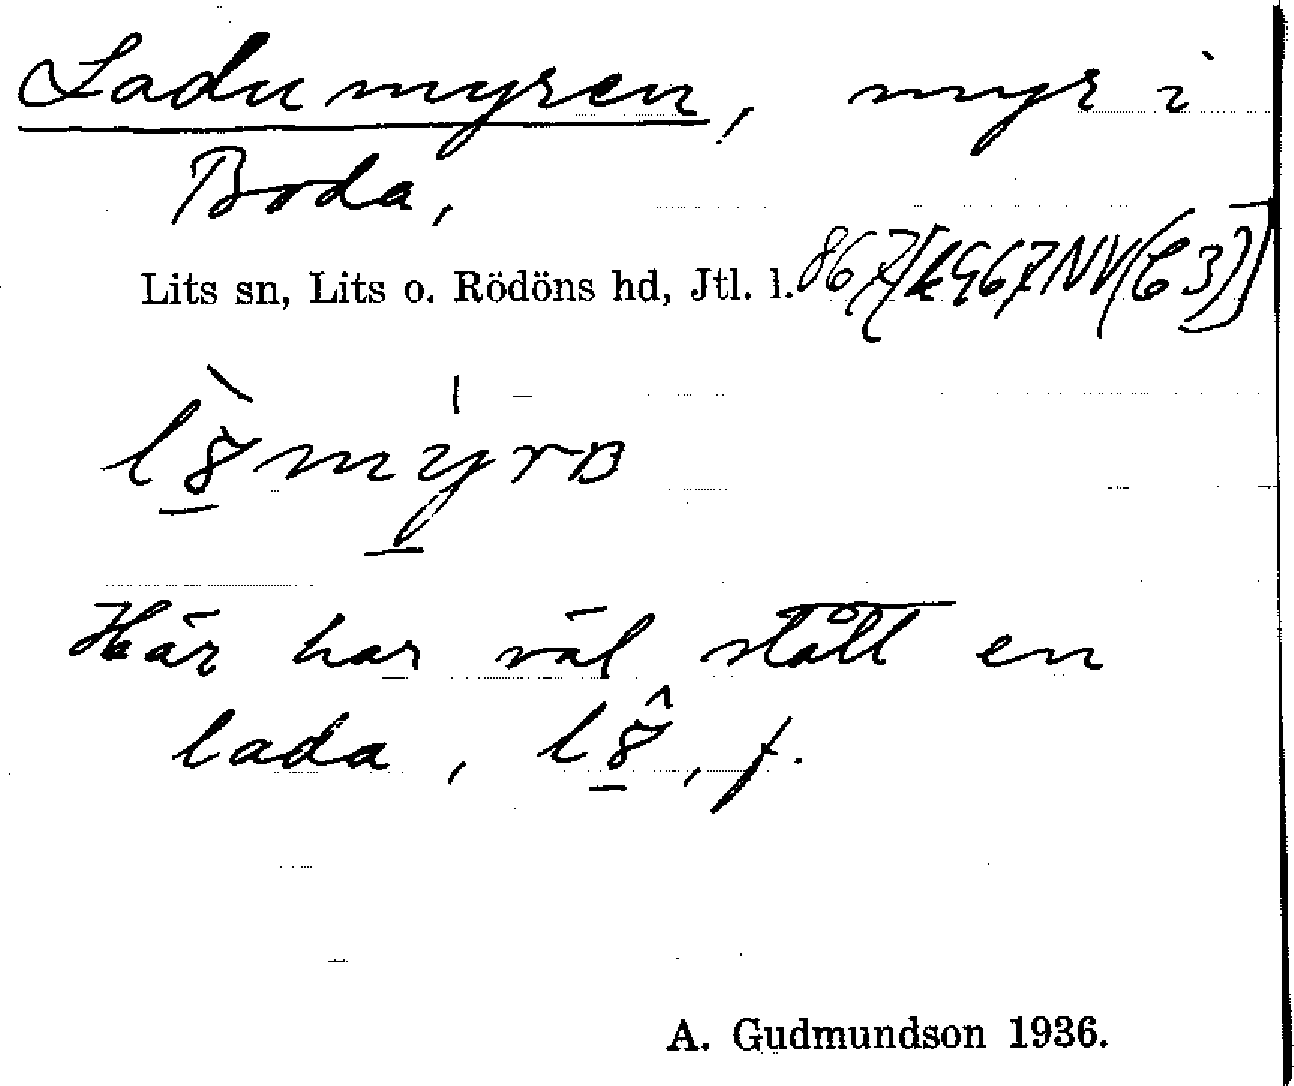 Ladumyren, myr i
Boda,
Lits sn, Lits o. Rödöns hd, Jtl. l.
Här har väl stått en
lada, f.
A. Gudmundson 1936.